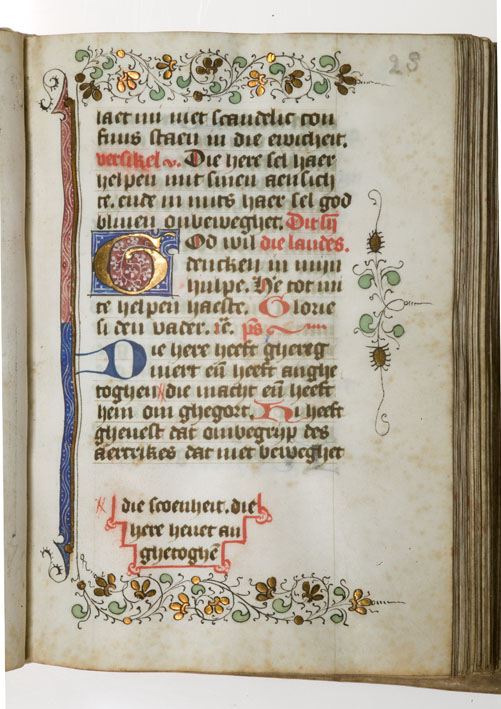 23
laet mi niet scandelic con
fuus staen in die ewicheit.
versikel v. Die here sel haer
helpen mit sinen aensich
te. ende in mits haer sel god
bliuen onbeweghet. Dit sij
God wil die laudes.
dencken in mijn
hulpe. He tot mi
te helpen haeste. Glorie
si den vader. ic. ps
Die here heeft ghereg
niert en̄ heeft anghe
toghen die macht en̄ heeft
hem om ghegort. Hi heeft
gheuest dat ombegrijp des
aertrikes dat niet beweghet
die scoenheit. die
here heuet an
ghetoghē